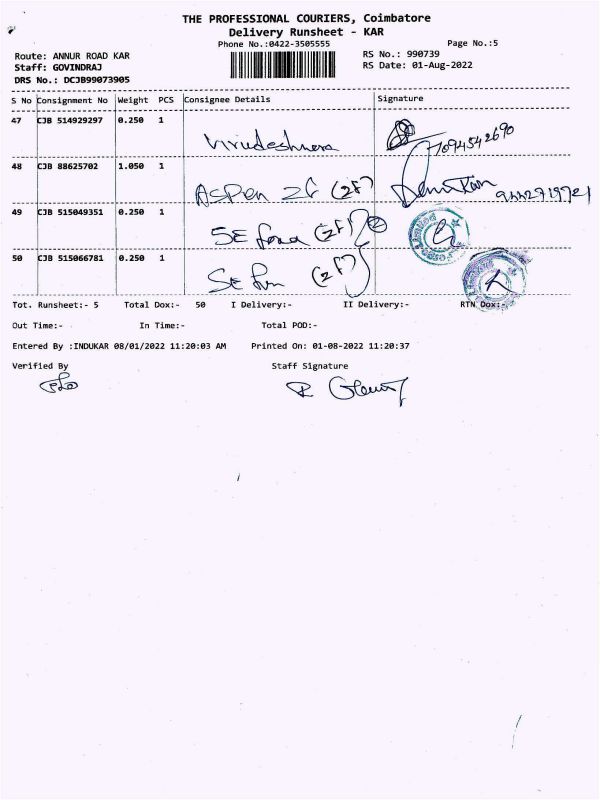 THE PROFESSIONAL COURIERS, Coimbatore
Delivery Runsheet - KAR
Phone No.:0422-3505555
Page No.:5
Route: ANNUR ROAD KAR
RS No.: 990739
Staff: GOVINDRAJ
RS Date: 01-Aug-2022
DRS No.: DCJB99073905
S No Consignment No Weight PCS Consignee Details Signature
47 CJB 514929297 0.250 1
7094542690
48 CJB 88625702 1.050 1
ASPEN 2F (2F)
9442719721
49 CJB 515049351 0.250 1
SE (2F) 2
50 CJB 515066781 0.250 1
SE (2F)
Tot. Runsheet:- 5 Total Dox:- 50 I Delivery:- II Delivery:- RTN Dox:-
Out Time:- In Time:- Total POD:-
Entered By :INDUKAR 08/01/2022 11:20:03 AM Printed On: 01-08-2022 11:20:37
Verified By Staff Signature